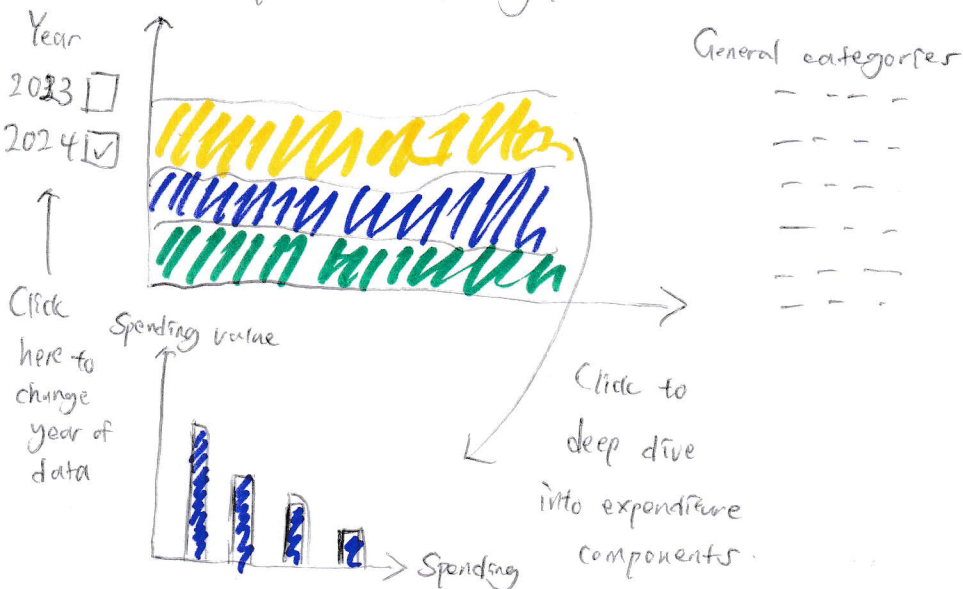 Year
2023
2024
Click
here to
change
year of
data
General categories
Spending value
Spending
Click to
deep dive
into expenditure
components.